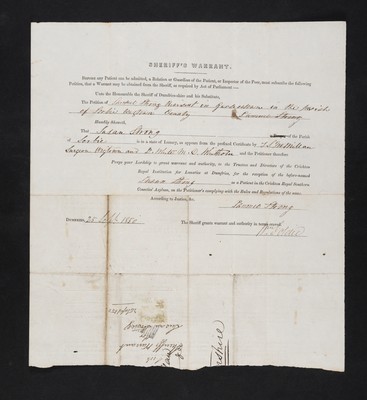 SHERIFF'S WARRANT.
BEFORE any Patient can be admitted, a Relation or Guardian of the Patient, or Inspector of the Poor, must subscribe the following
Petition, that a Warrant may be obtained from the Sheriff, as required by Act of Parliament:—
Unto the Honourable the Sheriff of Dumfries-shire and his Substitute,
The Petition of James Strong in the Parish
of Sorbie Wigtown County
Humbly Sheweth,
That Susan Strong of the Parish
of Sorbie is in a state of Lunacy, as appears from the prefixed Certificate by McMillan
Surgeon Wigtown and D. White M.D. Whithorn and the Petitioner therefore
Prays your Lordship to grant warrant and authority, to the Trustees and Directors of the Crichton
Royal Institution for Lunatics at Dumfries, for the reception of the before-named
Susan Strong as a Patient in the Crichton Royal Southern
Counties' Asylum, on the Petitioner's complying with the Rules and Regulations of the same.
According to Justice, &c.
James Strong
DUMFRIES, 25 1850 The Sheriff grants warrant and authority in terms craved.
Sheriff's Warrant
for
Susan Strong